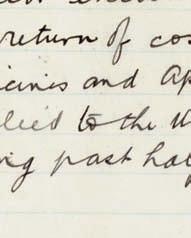 return of cos
icinis and Ap
lied to the U
ing past hal